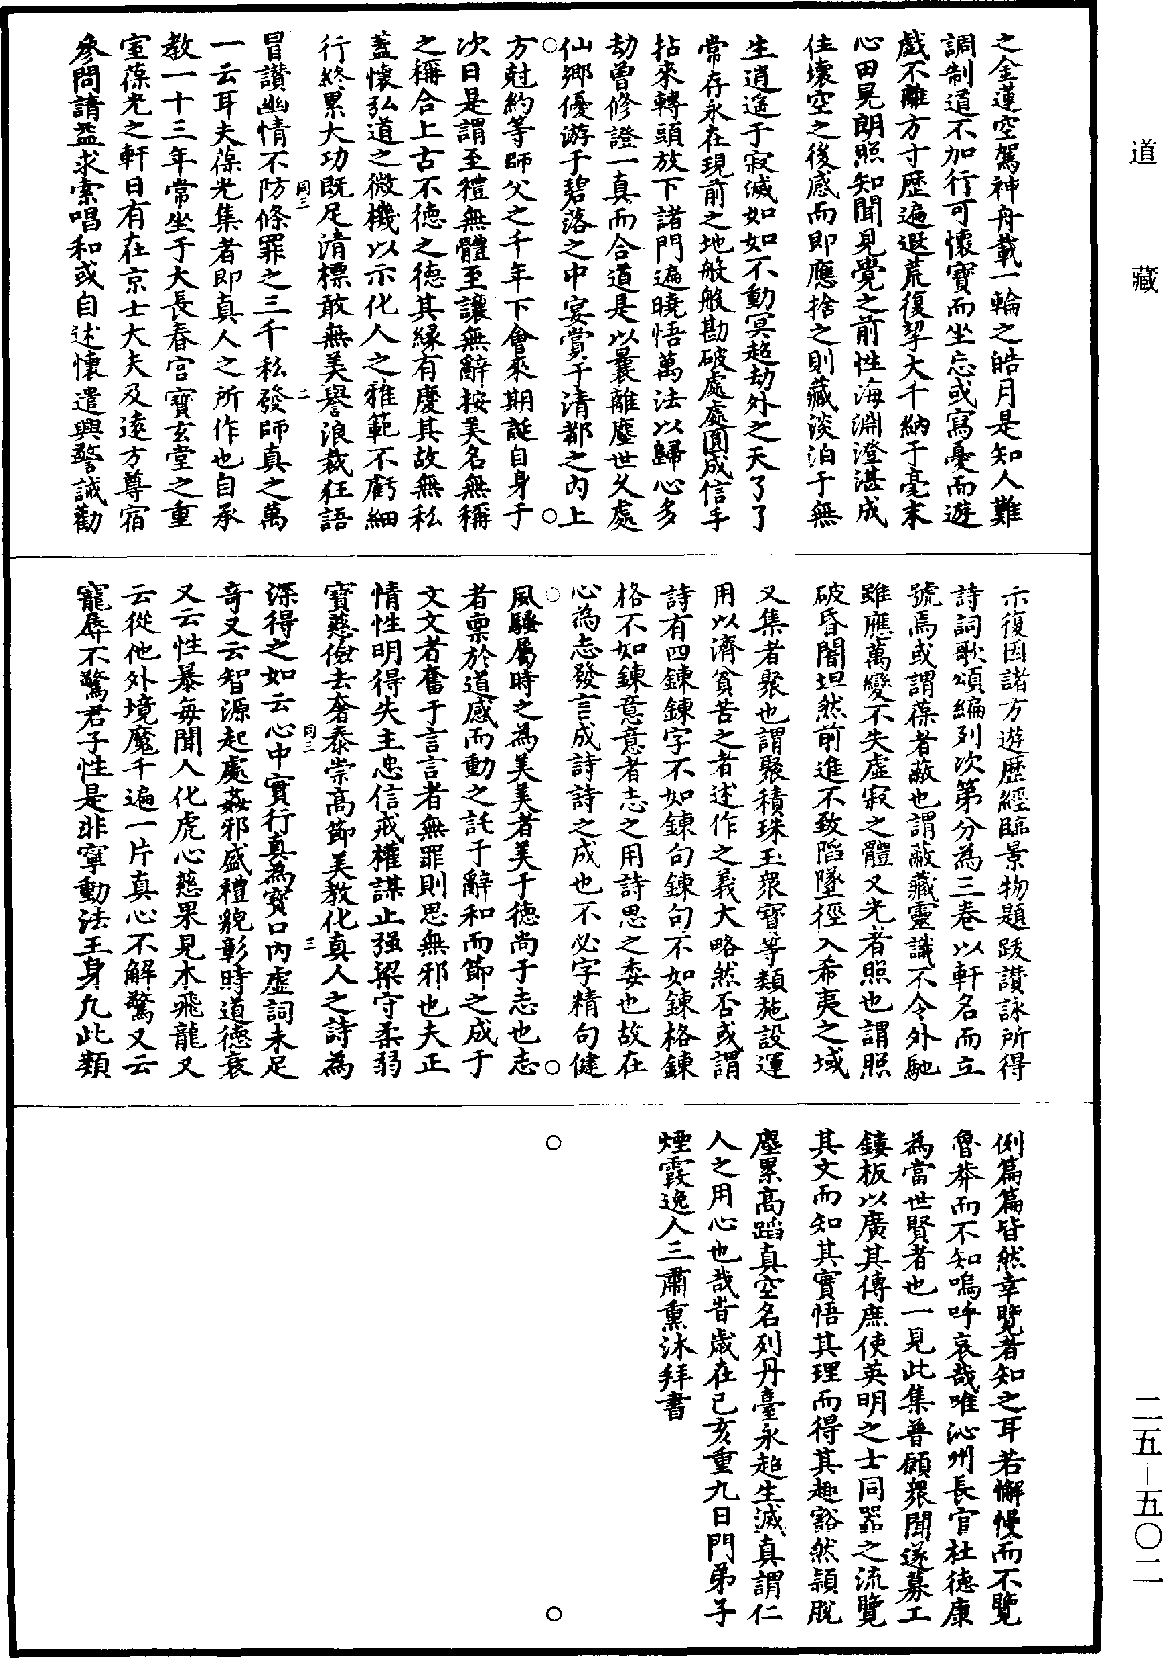 道藏
之金蓮空駕神舟載一輪之皓月是知人難
調制道不加行可懷寶而坐忘或寫憂而遊
戲不離方寸歷遍遐荒復挐大千納于毫末
心田晃朗照知聞見覺之前性海淵澄湛成
住壞空之後感而即應捨之則藏淡泊于無
生逍遥于寂滅如如不動冥超劫外之天了了
常存永在現前之地般般勘破處處圓成信手
拈來轉頭放下諸門遍曉悟萬法以歸心多
劫曾修證一真而合道是以曩離塵世久處
仙鄉優游于碧落之中宴賞于清都之內上
方尅約等師父之千年下會來期誕自身于
次日是謂至禮無體至讓無辭按美名無稱
之稱合上古不德之德其緣有慶其故無私
蓋懷弘道之微機以示化人之雅範不虧細
行終累大功既足清標敢無美譽浪裁狂語
冒讃幽情不防條罪之三千私發師真之萬
同三
二
一云耳夫葆光集者即真人之所作也自承
教一十三年常坐于大長春宮寶玄堂之重
室葆光之軒日有在京士大夫及遠方尊宿
參問請益求索唱和或自述懷遣興警誡勸
示復因諸方遊歷經臨景物題跋讃詠所得
詩詞歌頌編列次第分為三卷以軒名而立
號焉或謂葆者蔽也謂蔽藏靈識不令外馳
雖應萬變不失虛寂之體又光者照也謂照
破昏闇坦然前進不致陷墜徑入希夷之域
又集者聚也謂聚積珠玉衆寶等類施設運
用以濟貧苦之者述作之義大略然否或謂
詩有四鍊鍊字不如鍊句鍊句不如鍊格鍊
格不如鍊意意者志之用詩思之委也故在
心為志發言成詩詩之成也不必字精句健
風騷屬時之為美美者美于德尚于志也志
者稟於道感而動之託于辭和而節之成于
文文者奮于言言者無罪則思無邪也夫正
情性明得失主忠信戒權謀止强梁守柔弱
寶慈儉去奢泰崇高節美教化真人之詩為
同三
三
深得之如云心中實行真為寶口內虛詞未足
奇又云智源起處姦邪盛禮貌彰時道德衰
又云性暴每聞人化虎心慈果見木飛龍又
云從他外境魔千遍一片真心不解驚又云
寵辱不驚君子性是非寧動法王身凡此類
例篇篇皆然幸覽者知之耳若懈慢而不覽
魯莽而不知嗚呼哀哉唯沁州長官杜德康
為當世賢者也一見此集普願衆聞遂募工
鏤板以廣其傳庶使英明之士同器之流覽
其文而知其實悟其理而得其趣豁然頴脫
塵累高蹈真空名列丹臺永超生滅真謂仁
人之用心也哉旹歲在己亥重九日門弟子
煙霞逸人三肅熏沐拜書
二五—五〇二